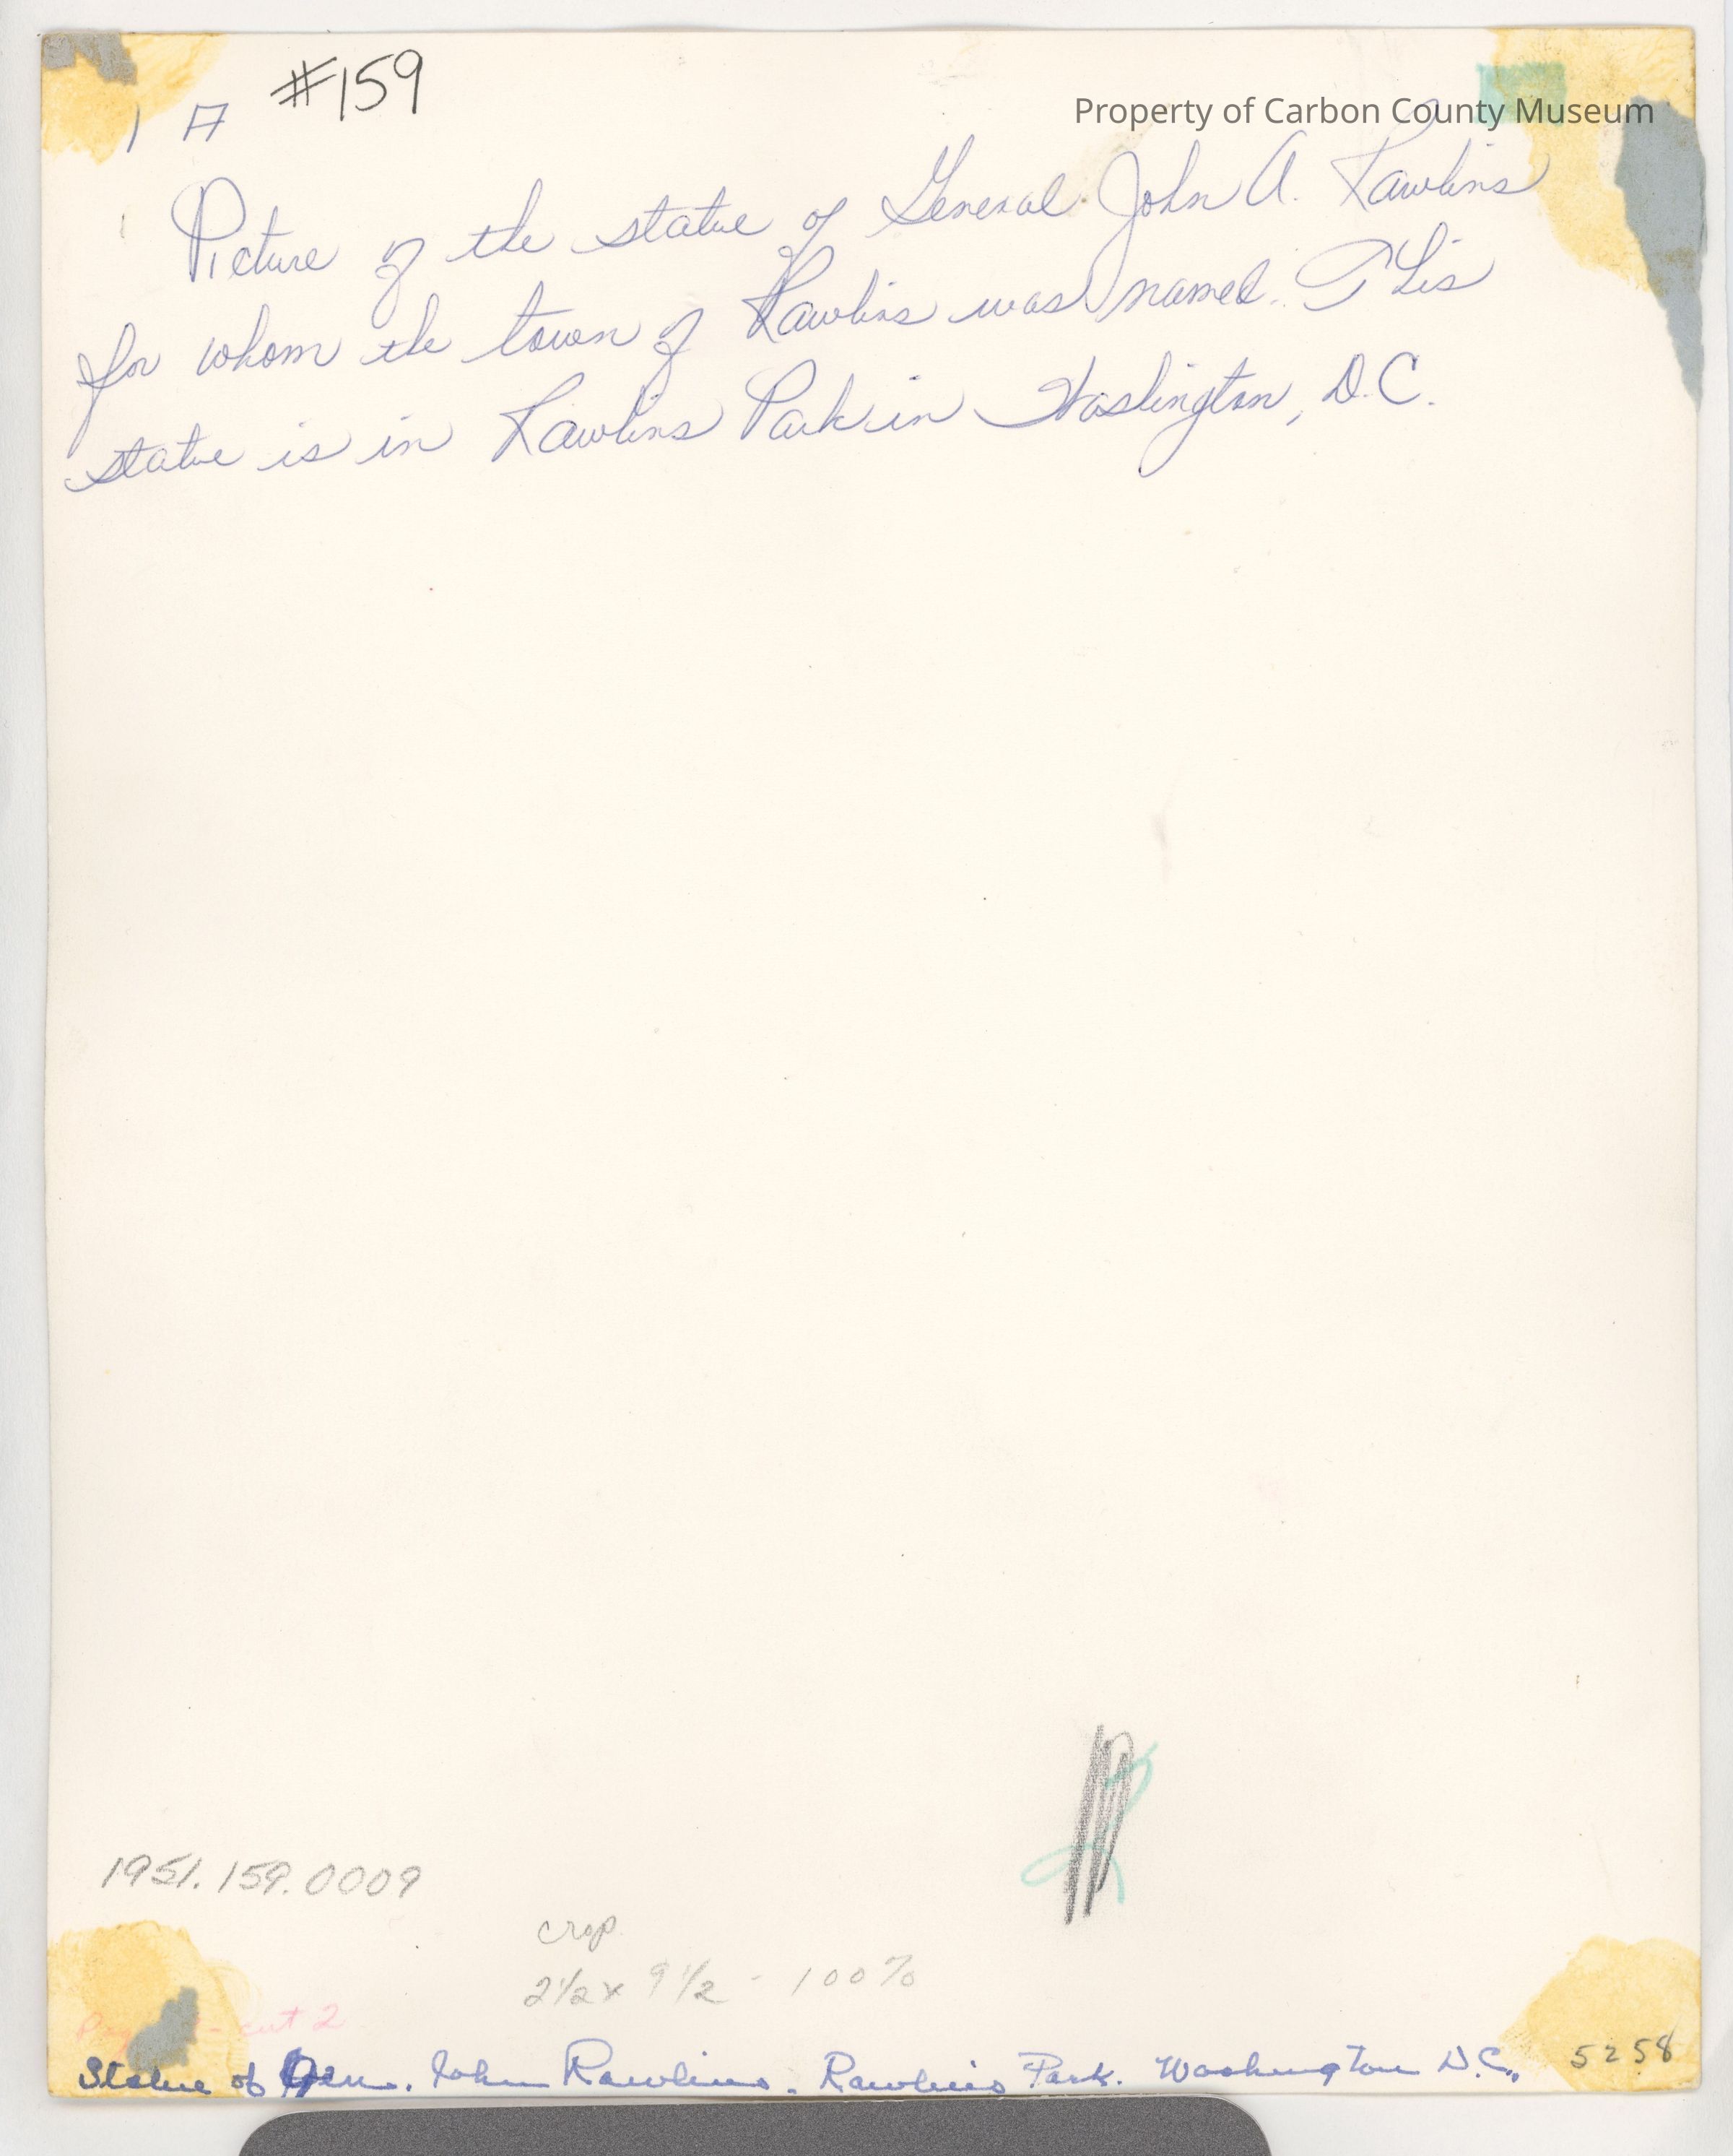 #159
Property of Carbon County Museum
1 A
Picture of the statue of General John A. Rawlins
for whom the town of Rawlins was named. This
statue is in Rawlins Park in Washington, D.C.
1951.159.0009
crop
2 1/2 x 9 1/2 - 100%
cut 2
Statue of Gen. John Rawlins. Rawlins Park. Washington D.C.
5258